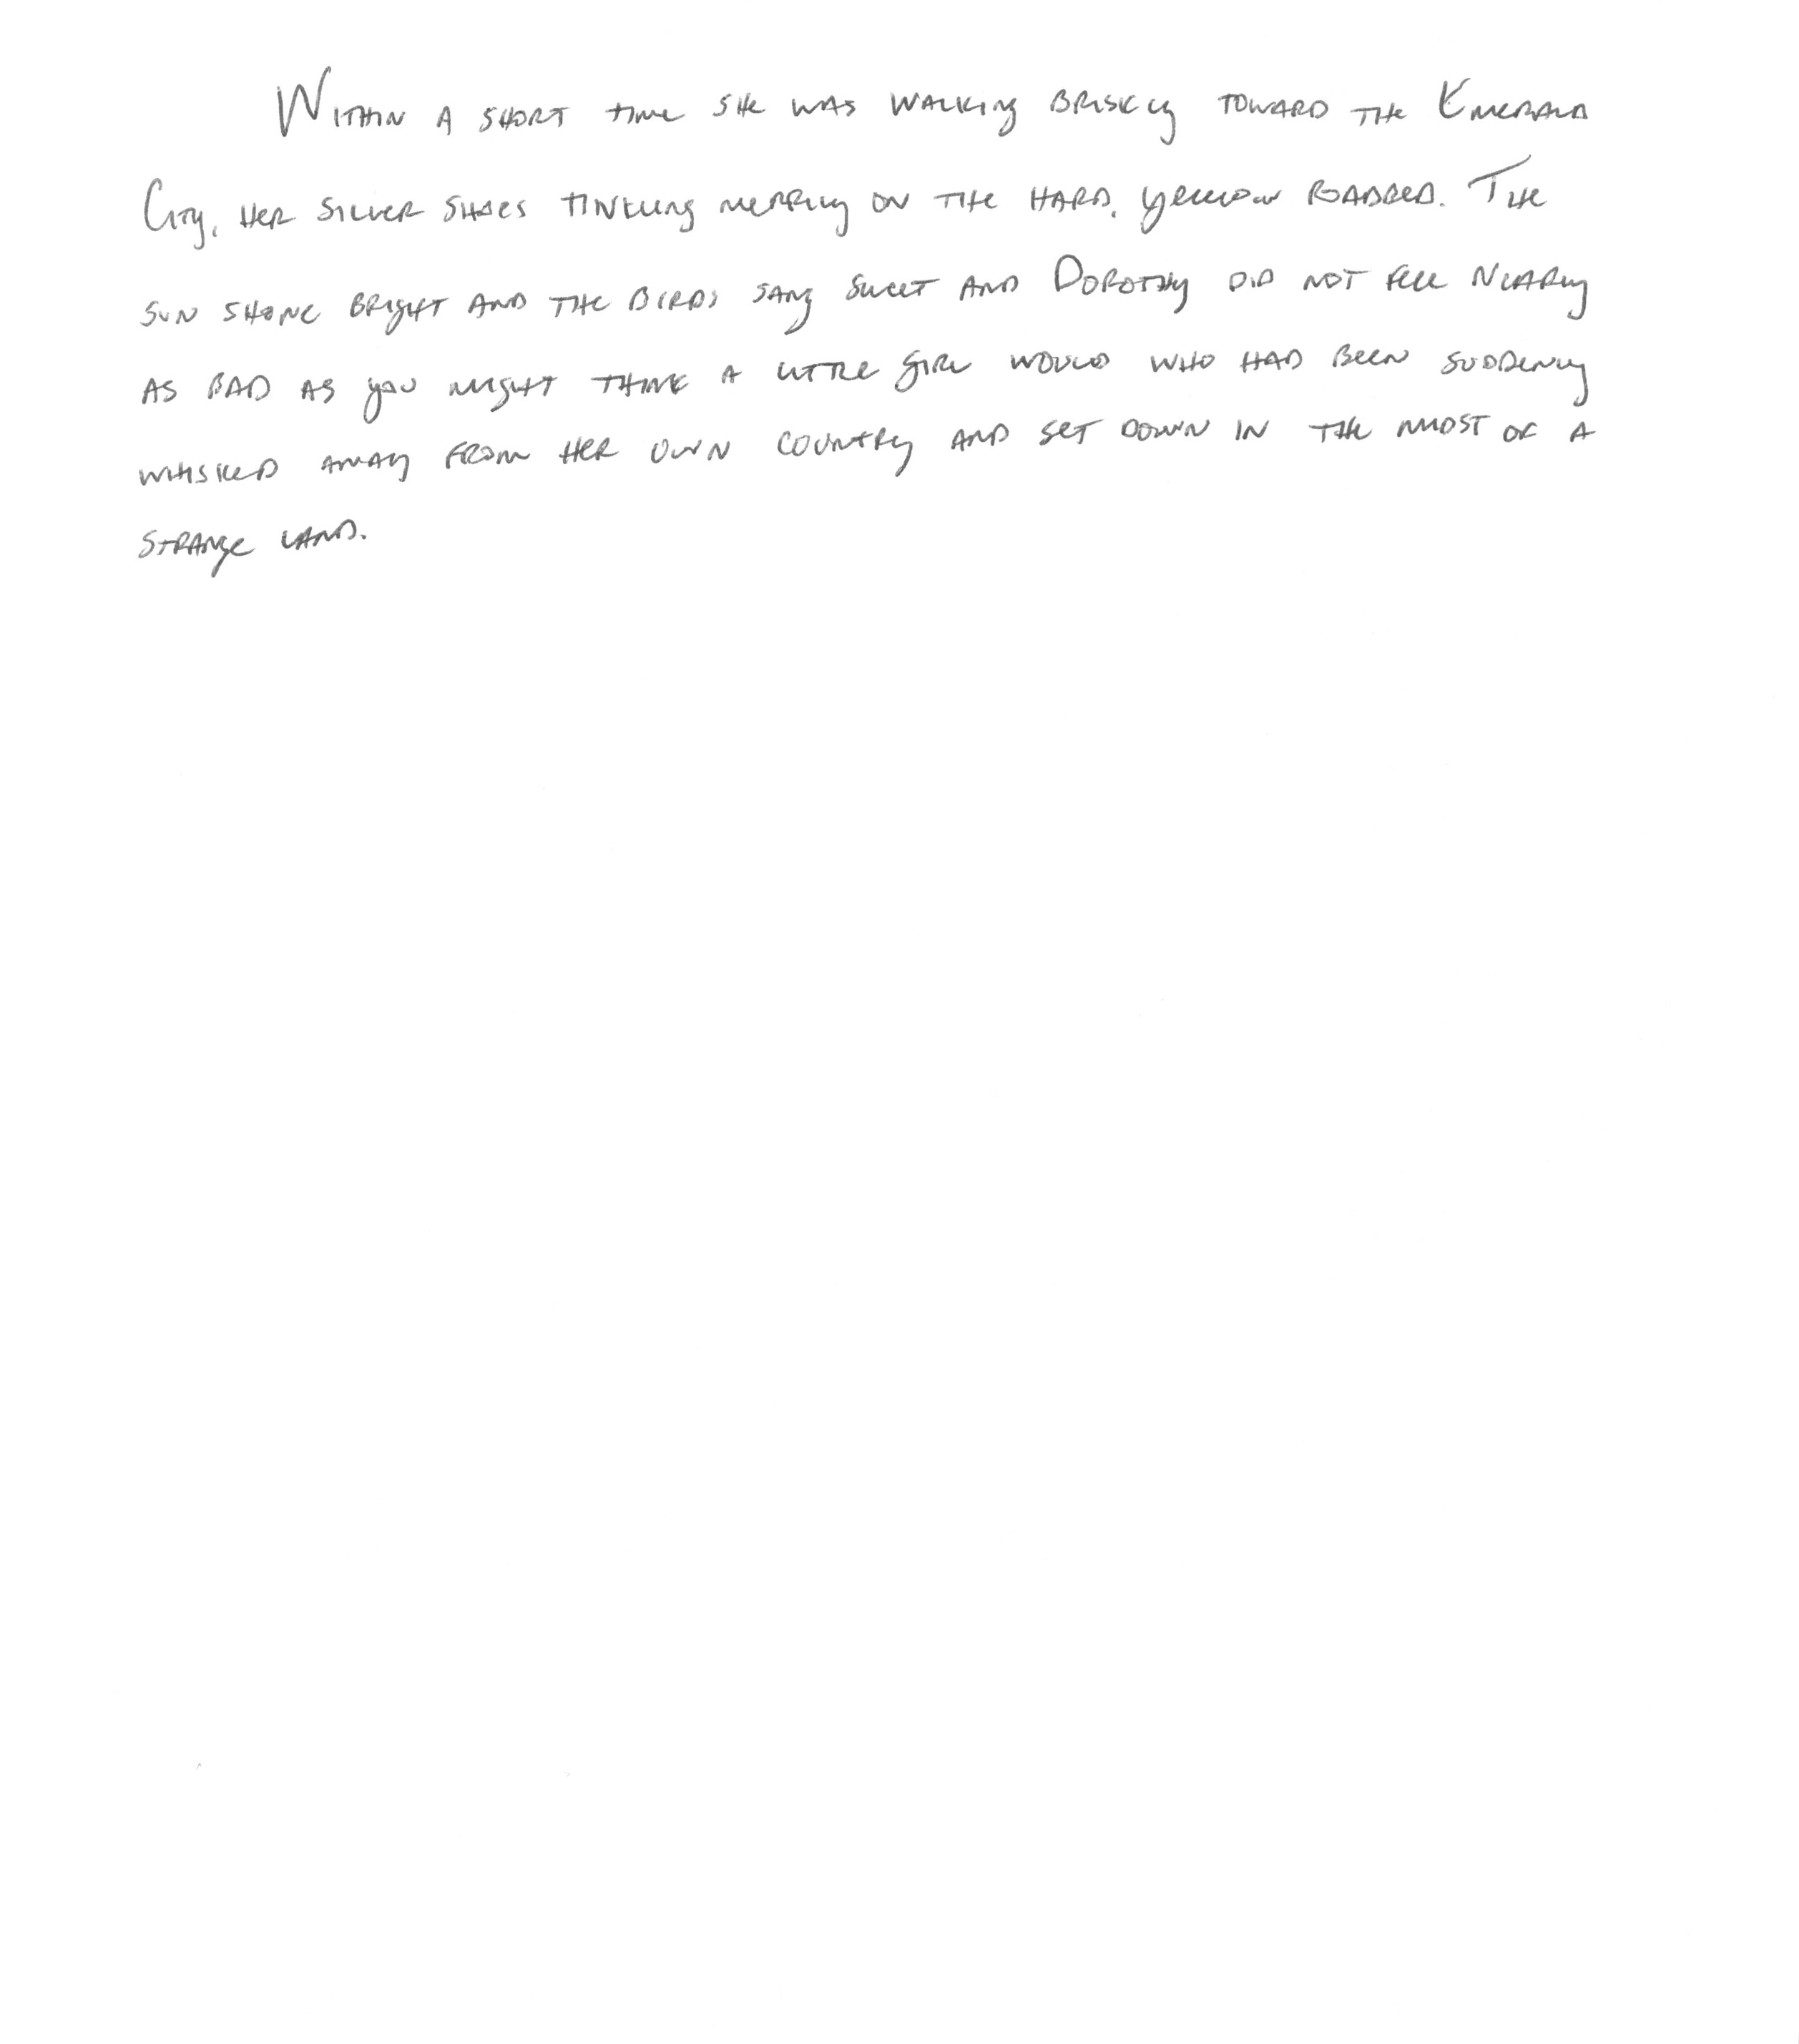 Within a short time she was walking briskly toward the Emerald
City, her silver shoes tinkling merrily on the hard, yellow roadbed. The
sun shone bright and the birds sang sweet and Dorothy did not feel nearly
as bad as you might think a little girl would who had been suddenly
whisked away from her own country and set down in the midst of a
strange land.